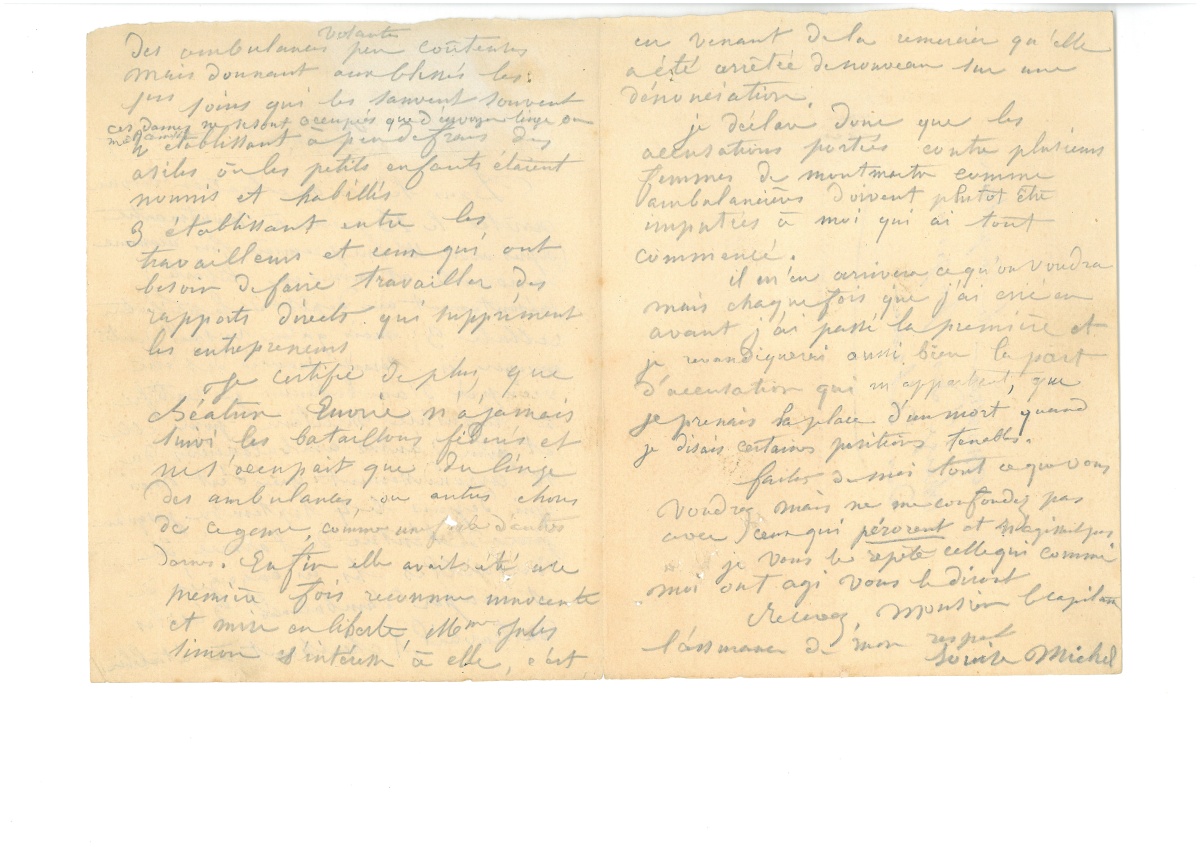 volantes
des ambulances peu coûteuses
mais donnant aux blessés les
1ers soins qui les sauvent souvent
ces dames ne se sont occupés que d'envoyer linge ou
médicaments
2 établissant à peu de frais des
asiles où les petits enfants étaient
nourris et habillés
3 établissant entre les
travailleurs et ceux qui ont
besoin de faire travailler des
rapports directs qui suppriment
les entrepreneurs
Je certifie de plus, que
Béatrix Euvrie n'a jamais
suivi les bataillons fédérés et
ne s'occupait que du linge
des ambulances ou autres choses
de ce genre, comme une foule d'autres
dames. Enfin elle avait été une
première fois reconnue innocente
et mise en liberté, Mme Jules
Simon s'intéresse à elle, c'est
en venant de la remercier qu'elle
a été arrêtée de nouveau sur une
dénonciation.
je déclare donc que les
accusations portées contre plusieurs
femmes de montmartre comme
ambulancières doivent plutôt être
imputées à moi qui ai tout
commencé.
il m'en arrivera ce qu'on voudra
mais chaque fois que j'ai crié en
avant j'ai passé la première et
je revandiquerai aussi bien la part
d'accusation qui m'appartient, que
je prenais la place d'un mort quand
je disais certaines positions tenables.
faites de moi tout ce que vous
voudrez mais ne me confondez pas
avec ceux qui pérorent et n'agissent pas
je vous le répète celles qui comme
moi ont agi vous le diront
Recevez, Monsieur le capitaine
l'assurance de mon respect
Louise Michel